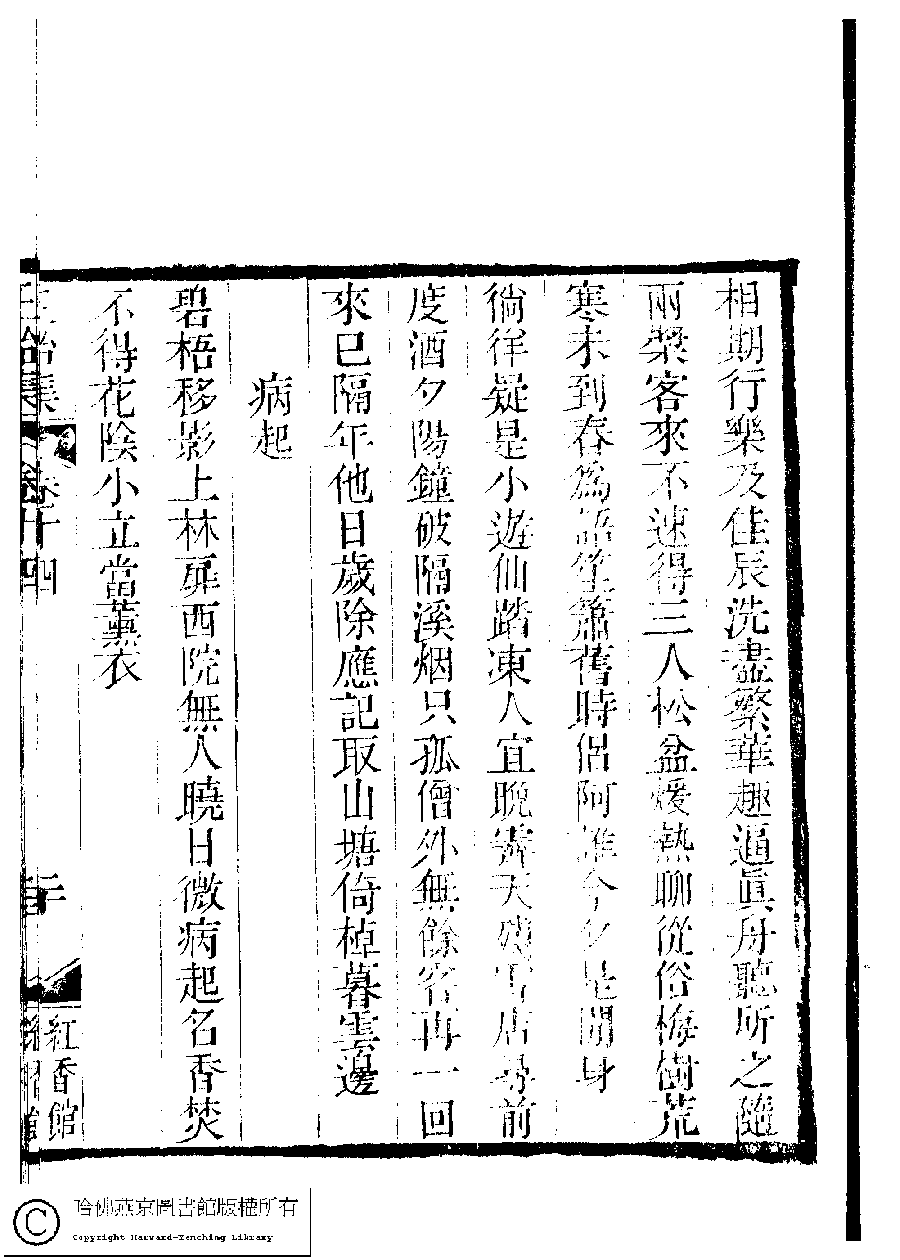 相期行樂及佳辰洗盡繁華趣逼眞舟聽所之隨
兩槳客來不速得三人松盆煖熱聊從俗梅樹荒
寒未到春爲語笙簫舊時侶阿誰今夕是閒身
徜徉疑是小遊仙踏凍人宜晚霽天殘雪店尋前
度酒夕陽鐘破隔溪烟只孤僧外無餘客再一回
來已隔年他日歲除應記取山塘倚棹暮雲邊
病起
碧梧移影上林扉西院無人曉日微病起名香焚
不得花陰小立當薰衣
集 卷十四
紅香館
哈佛燕京圖書館版權所有
Copyright Harvard-Yenching Library